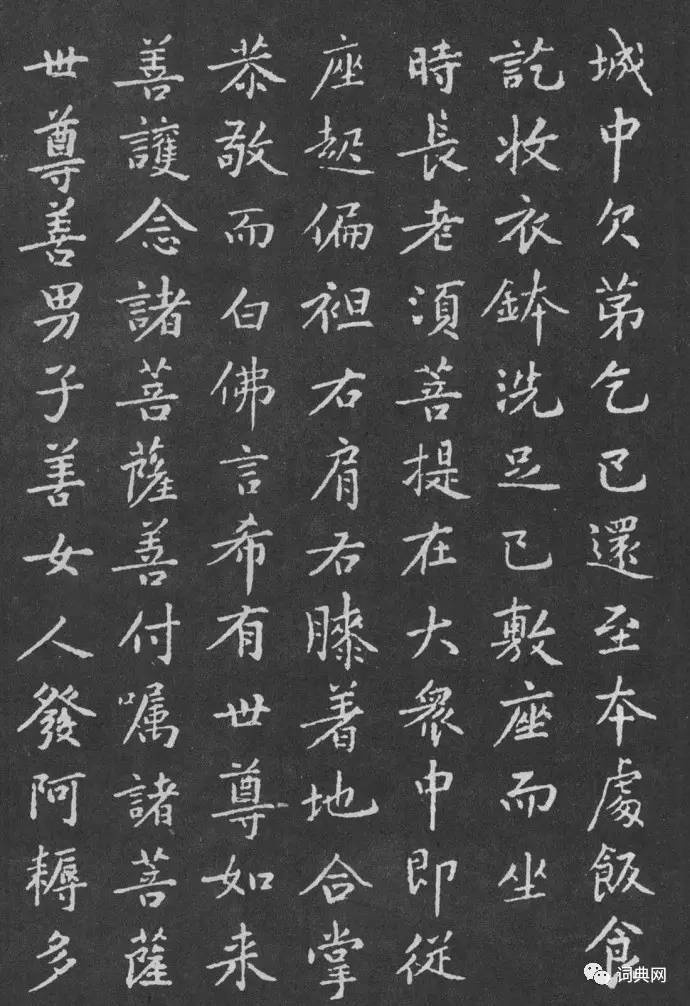 城中次第乞已還至本處飯食
訖收衣鉢洗足已敷座而坐
時長老須菩提在大衆中即從
座起偏袒右肩右膝着地合掌
恭敬而白佛言希有世尊如来
善護念諸菩薩善付嘱諸菩薩
世尊善男子善女人發阿耨多
词典网